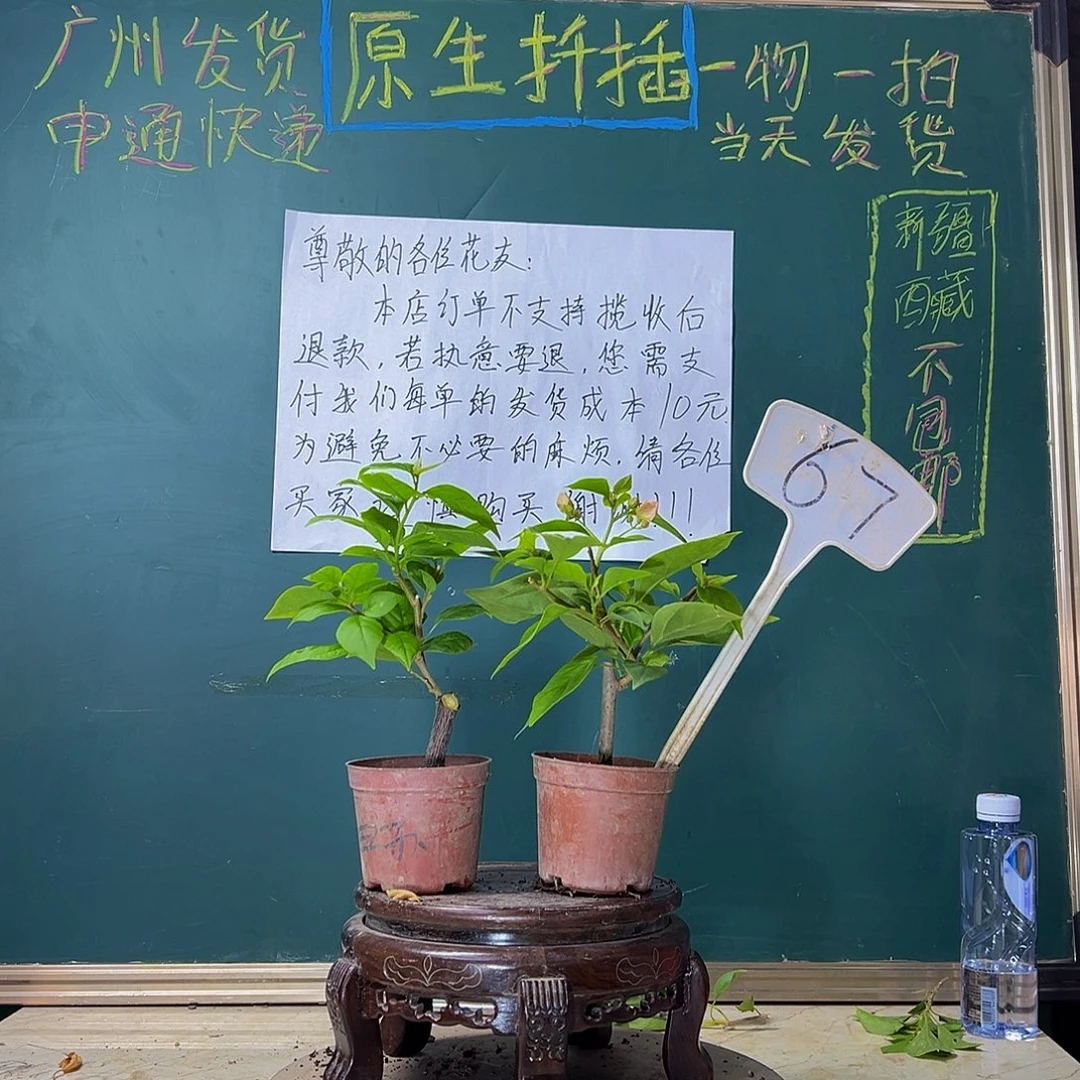 广州发货
申通快递
原生扦插
一物一拍
当天发货
新疆
西藏
不包邮
尊敬的各位花友：
本店订单不支持揽收后
退款，若执意要退，您需支
付我们每单的发货成本10元
为避免不必要的麻烦，请各位
买家 慎购买 谢谢!!!
67